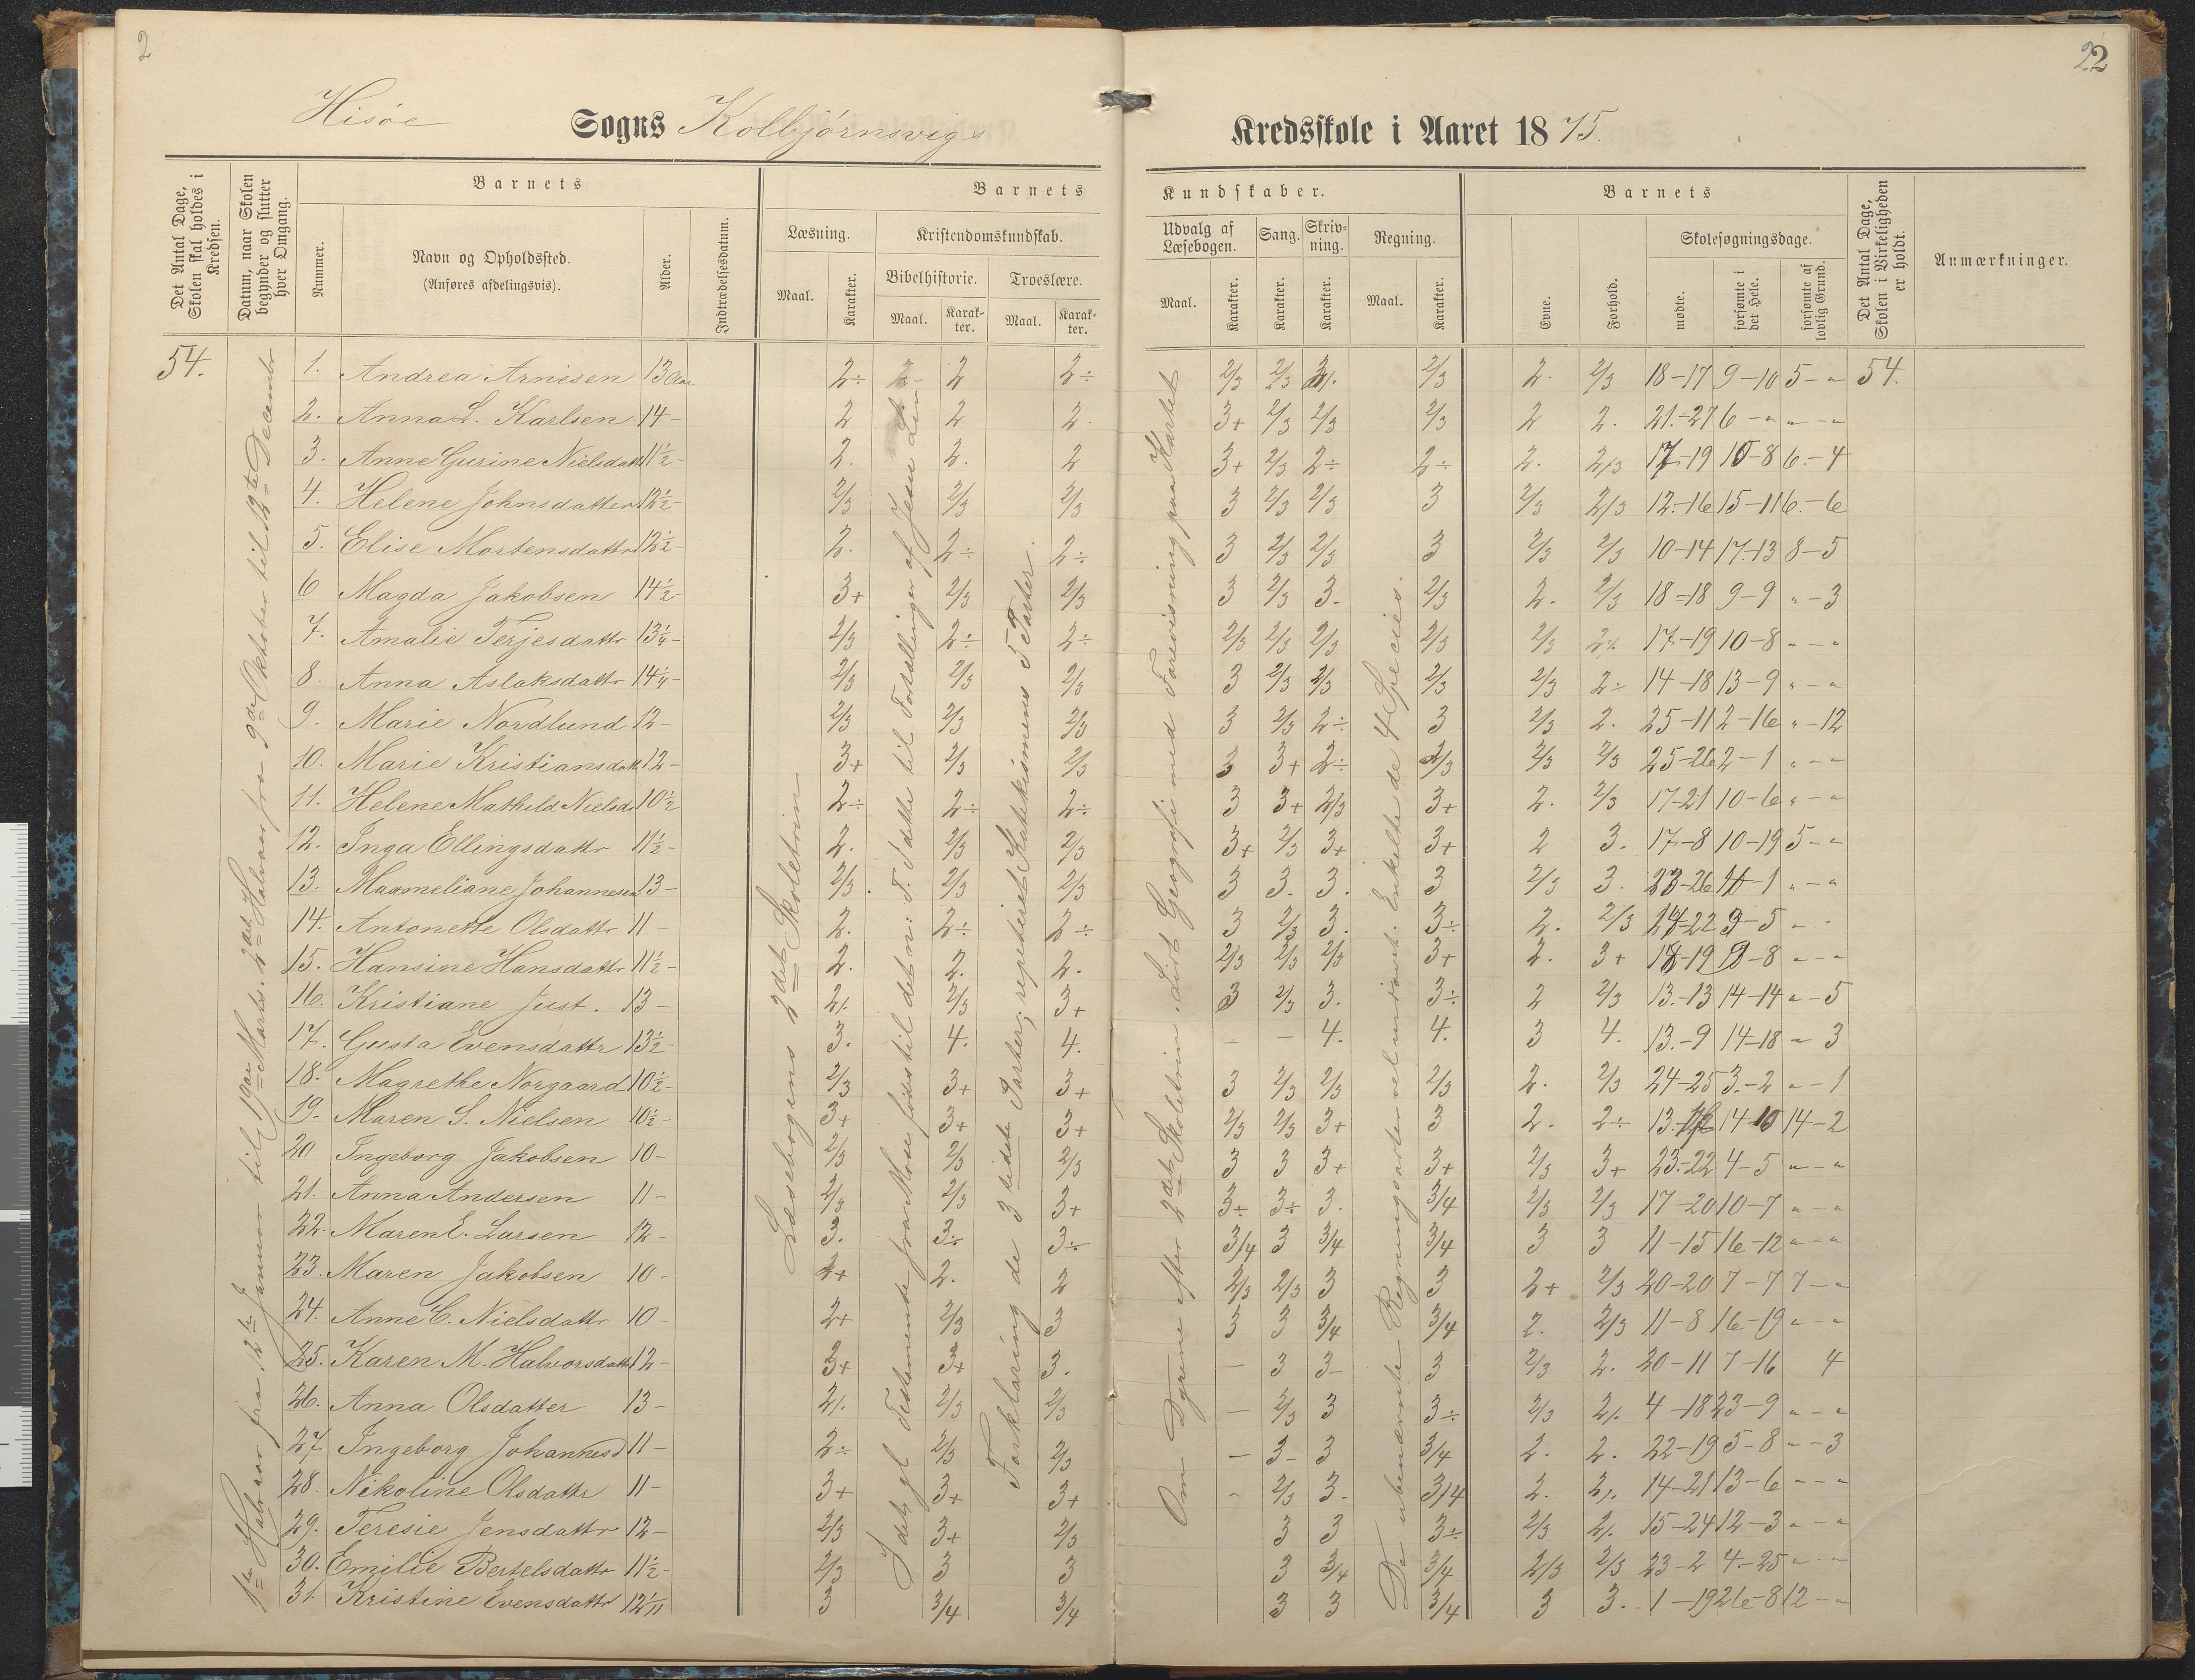 2
22
Hisöe Sogns Kolbjörnsvigs Kredsskole i Aaret 1875.
Det Antal Dage, Skolen skal holdes i Kredsen.
Datum, naar Skolen begynder og slutter hver Omgang.
Barnets
Nummer.
Navn og Opholdssted.
(Anføres afdelingsvis).
Alder.
Indtrædelsesdatum.
Barnets Kundskaber.
Læsning.
Maal. Karakter.
Kristendomskundskab.
Bibelhistorie. Troeslære.
Maal. Karakter. Maal. Karakter.
Udvalg af Læsebogen.
Maal. Karakter.
Sang.
Karakter.
Skrivning.
Karakter.
Regning.
Maal. Karakter.
Barnets
Evne. Forhold.
Skolesøgningsdage.
mødte. forsømte i det Hele. forsømte af lovlig Grund.
Det Antal Dage, Skolen i Virkeligheden er holdt.
Anmærkninger.
54.
1ste Halvaar fra 12te Januar til 19de Marts. 2det Halvaar fra 9de Oktober til 12te December
Læsebogens 2det Skoletrin
I det gl Testamente fra Mose föds til det n: T. Samt til Fortællinger af Jesu Liv
Forklaring de 3 sidste Parter; repeteret Katekismens 5 Parter.
Om Dyrene efter 2det Skoletrin. Lidt Geografi med Forevisning paa Kartet
De ubenævnte Regningsarter vel indøvet. Enkelte de 4 Species.
1. Andrea Arnesen 13 Aar 2÷ 2 2÷ 2/3 2/3 2/3 2. 2/3 18-17 9-10 5-" 54.
2. Anna L. Karlsen 14- 2 2 2. 3+ 2/3 2/3 2/3 2 2. 21.-27 6-" "-"
3. Anne Gurine Nielsdatt 11½- 2. 2. 2 3+ 2/3 2÷ 2÷ 2. 2/3 17-19 10-8 6.-4
4. Helene Johnsdatter 12½- 2/3 2/3 2/3 3 2/3 2/3 3 2/3 2/3 12.-16 15-11 6.-6
5. Elise Mortensdattr 12½- 2. 2÷ 2÷ 3 2/3 2/3 3 2/3 2/3 10-14 17.-13 8-5
6 Magda Jakobsen 14½- 3+ 2/3 2/3 3 2/3 3. 2/3 2. 2/3 18-18 9-9 "-3
7. Amalie Terjesdattr 13¼- 2/3 2÷ 2÷ 2/3 2/3 2/3 2/3 2/3 2÷ 17-19 10-8 "-"
8. Anna Aslaksdattr 14¼- 2/3 2/3 2/3 3 2/3 2/3 2/3 2/3 2÷ 14-18 13-9 "-"
9. Marie Nordlund 12- 2/3 2/3 2/3 3 2/3 2÷ 3 2/3 2. 25-11 2-16 "-12
10. Marie Kristiansdatt 12- 3+ 2/3 2/3 3 3+ 2÷ 2/3 2/3 2/3 25-26 2-1 "-"
11. Helene Mathild Nielsd 10½ 2÷ 2÷ 2÷ 3 3+ 2/3 3+ 2. 2/3 17-21 10-6 "-"
12. Inga Ellingsdattr 11½- 2. 2/3 2/3 3+ 2/3 3+ 3+ 2 3. 17-8 10-19 5-"
13. Maxmeliane Johannesen 13- 2/3. 2/3 2/3 3 3. 3. 3 2/3 3. 23-26 4-1 "-"
14. Antonette Olsdattr 11- 2. 2÷ 2÷ 3 2/3 3. 3÷ 2. 2/3 -22 9-5
15. Hansine Hansdattr 11½- 2. 2. 2. 2/3 2/3 2/3 3+ 2. 3+ 18-19 9-8 "-"
16. Kristiane Just. 13- 2/. 2/3 3+ 3 2/3 3. 3÷ 2 2/3 13.-13 14-14 "-5
17. Gusta Evensdattr 13½- 3. 4. 4. - - 4. 4. 3 4. 13.-9 14-18 " 3
18. Magrethe Norgaard 10½- 2/3 3+ 3+ 3 2/3 2/3 2/3 2. 2/3 24-25 3.-2 "-1
19. Maren S. Nielsen 10½- 3+ 3+ 3+ 2/3 2/3 3+ 3 2. 2÷ 13. 14-10 14-2
20 Ingeborg Jakobsen 10- 2/3 2/3 2/3 3 3 3+ 3+ 2/3 3+ 23.-22 4-5 "-"
21. Anna Andersen 11- 2/3 2/3 3+ 3÷ 3÷ 3. 3/4 2/3 2/3 17-20 10-7 "-"
22. Maren E. Larsen 12- 3. 3÷ 3÷ 3/4 3 3/4 3/4 3 3 11-15 16-12 "-"
23. Maren Jakobsen 10- 2+ 2. 2 2/3 2/3 3 3 2+ 2/3 20-20 7-7 7-"
24. Anne C. Nielsdattr 10- 2+ 2/3 3 3 3 3/4 3/4 2. 2/3 11-8 16-19 "-"
25. Karen M. Halvorsdatt 12- 3+ 3+ 3. - 3 3- 3 2/3 2. 20-11 7-16 4
26. Anna Olsdatter 13- 2/. 2/3 2/3 - 2/3 3 3÷ 2/3 2/. 4-18 23-9 "-"
27. Ingeborg Johannesd 11- 2÷ 2/3 2/3 - 3- 3 3/4 2. 2. 22-19 5-8 "-3
28. Nikoline Olsdattr 11- 3+ 3+ 3+ - 2/3 3- 3/4 2. 2/. 14-21 13-6 "-"
29. Teresie Jensdattr 12- 2/3 3+ 2/3 3 3 3÷ 2/3 2/. 15-24 12-3 "-"
30. Emilie Bertelsdattr 11½- 2/3 3 3 3 3/4 3/4 2/3 2/3 23-2 4-25 "-"
31. Kristine Evensdattr 12 1/11 3 3/4 3/4 3 3 3/4 3 3. 1-19 26-8 12-"